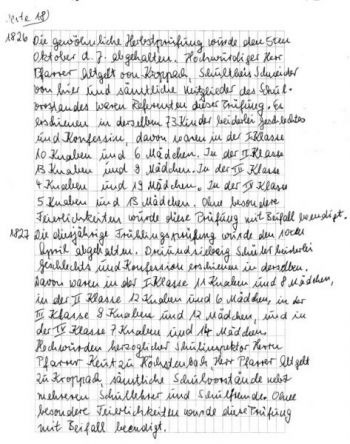 Seite 18)
1826 Die gewöhnliche Herbstprüfung wurde den 5ten
Oktober d. J. abgehalten. Hochwürdiger Herr
Pfarrer Altgelt von Kroppach, Schultheis Schneider
von hier und sämtliche Mitglieder des Schul-
vorstandes waren Referenten dieser Prüfung. Es
erschienen in derselben 73 Kinder beiderlei Geschlechtes
und Konfession, davon waren in der I Klasse
10 Knaben und 6 Mädchen. In der II Klasse
13 Knaben und 9 Mädchen. In der III Klasse
4 Knaben und 19 Mädchen. In der IV Klasse
5 Knaben und 13 Mädchen. Ohne besondere
Feierlichkeiten wurde diese Prüfung mit Beifall beendigt.
1827 Die diesjährige Frühlingsprüfung wurde den 10ten
April abgehalten. Dreiundsiebzig Schüler beiderlei
Geschlechts und Konfession erschienen in derselben.
Davon waren in der I Klasse 11 Knaben und 8 Mädchen,
in der II Klasse 12 Knaben und 6 Mädchen, in der
III Klasse 8 Knaben und 12 Mädchen, und in
der IV Klasse 7 Knaben und 14 Mädchen.
Hochwürden herzoglicher Schulinspektor Herrn
Pfarrer Keutz zu Höchstenbach, Herr Pfarrer Altgelt
zu Kroppach, sämtliche Schulvorstände nebst
mehreren Schullehrer und Schulfreunde. Ohne
besondere Feierlichkeiten wurde diese Prüfung
mit Beifall beendigt.